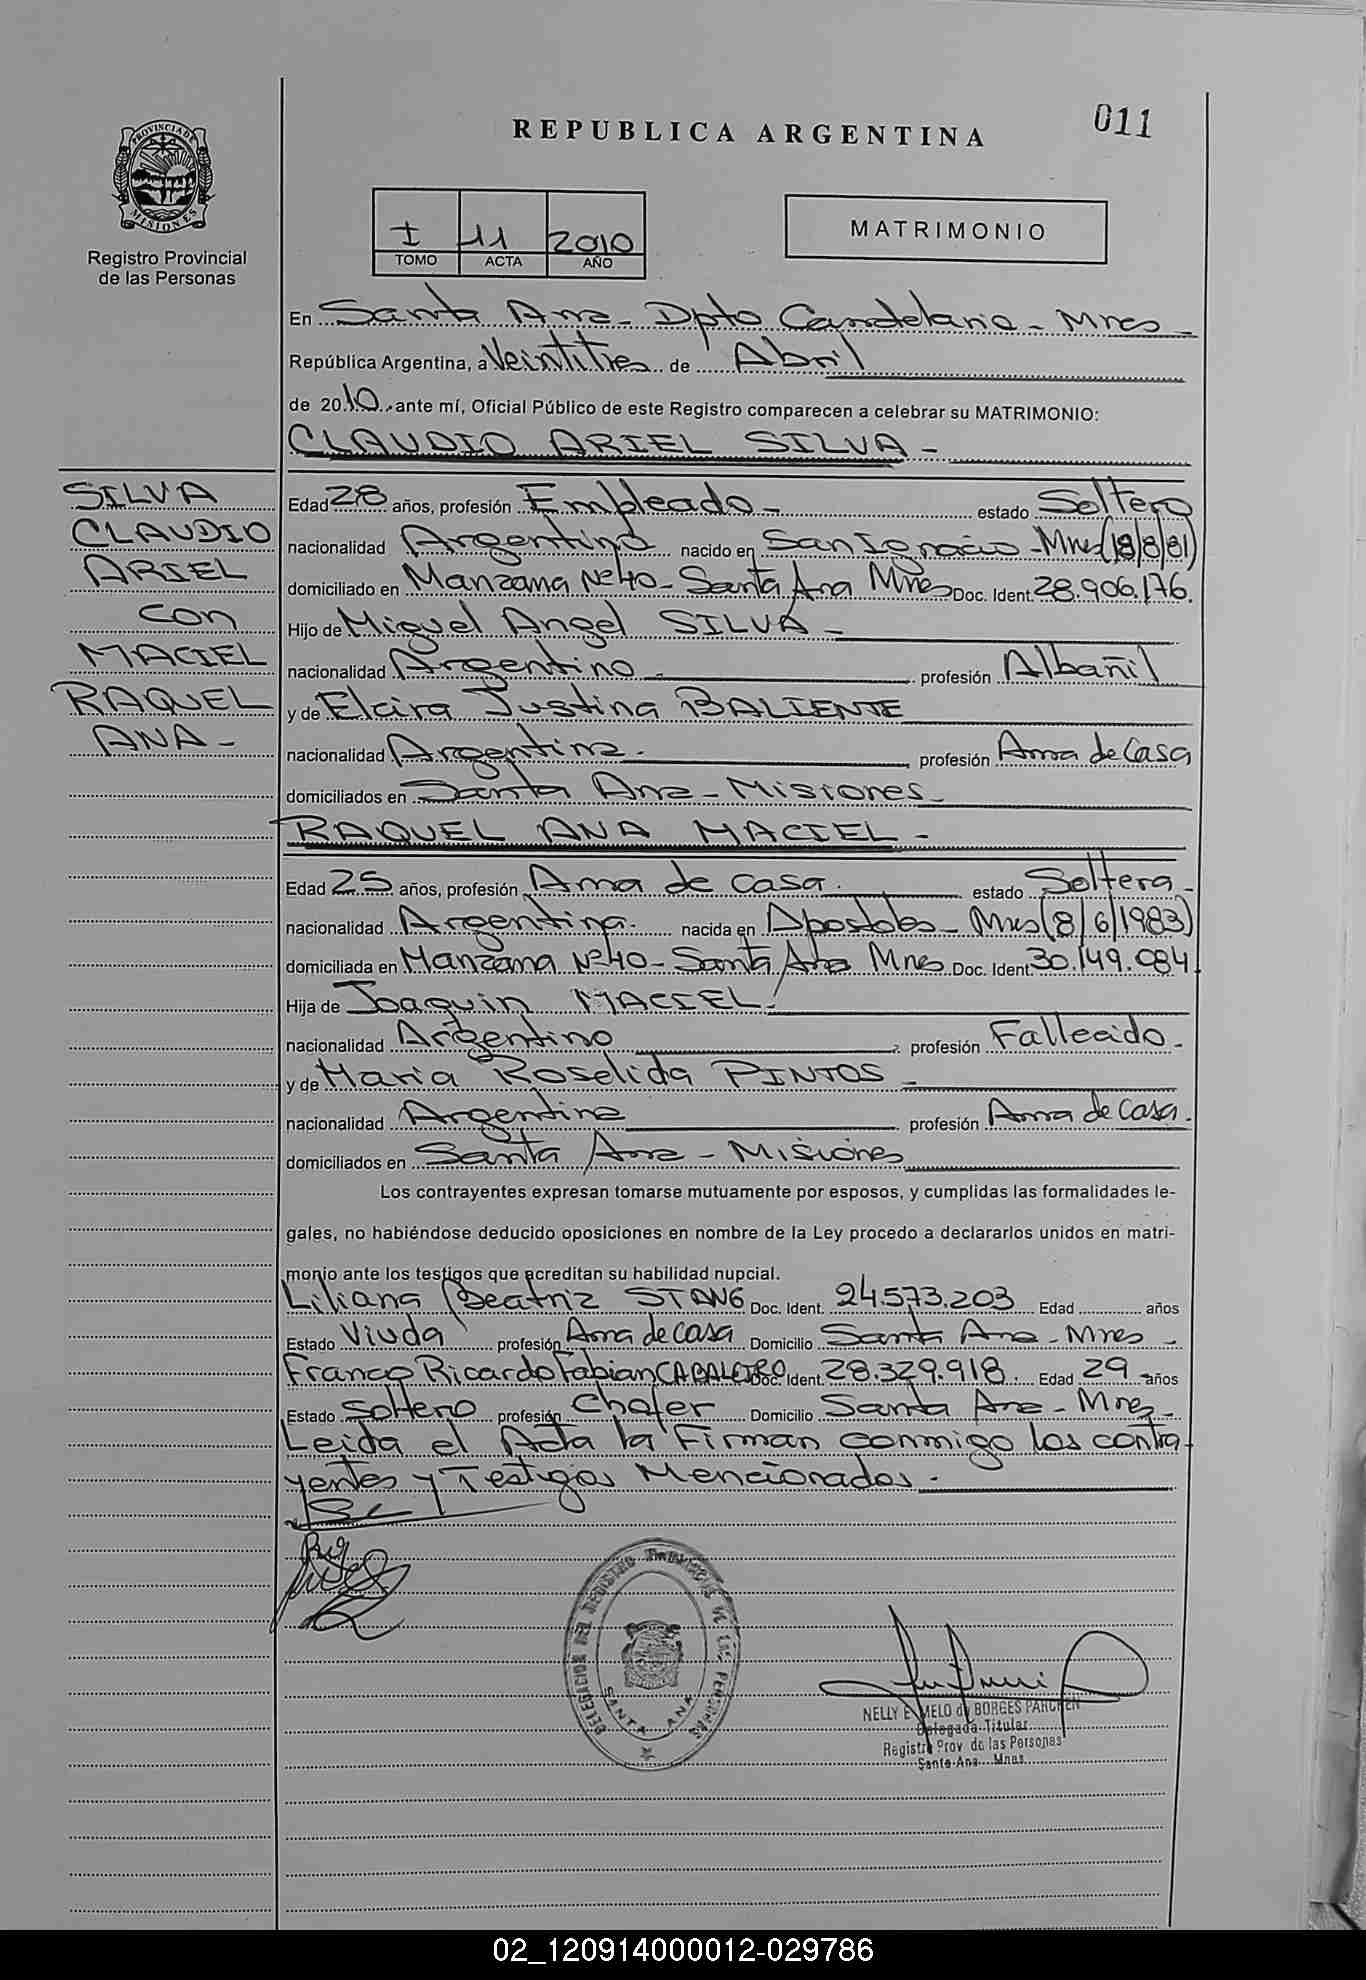 011
REPUBLICA ARGENTINA
PROVINCIA DE
MISIONES
Registro Provincial
de las Personas
I 11 2010
TOMO ACTA AÑO
MATRIMONIO
En Santa Ana - Dpto Candelaria - Mnes -
República Argentina, a Veintitres de Abril
de 2010, ante mí, Oficial Público de este Registro comparecen a celebrar su MATRIMONIO:
CLAUDIO ARIEL SILVA -
SILVA
CLAUDIO
ARIEL
con
MACIEL
RAQUEL
ANA -
Edad 28 años, profesión Empleado - estado Soltero
nacionalidad Argentino nacido en San Ignacio - Mnes (18/8/81)
domiciliado en Manzana Nº 40 - Santa Ana Mnes Doc. Ident. 28.906.176.
Hijo de Miguel Angel SILVA -
nacionalidad Argentino - profesión Albañil
y de Elcira Justina BALIENTE
nacionalidad Argentina - profesión Ama de Casa
domiciliados en Santa Ana - Misiones -
RAQUEL ANA MACIEL -
Edad 25 años, profesión Ama de casa. estado Soltera -
nacionalidad Argentina. nacida en Apostoles - Mnes (8/6/1983)
domiciliada en Manzana Nº 40 - Santa Ana Mnes Doc. Ident. 30.149.084
Hija de Joaquin MACIEL -
nacionalidad Argentino profesión Fallecido -
y de Maria Roselida PINTOS -
nacionalidad Argentina profesión Ama de casa.
domiciliados en Santa Ana - Misiones
Los contrayentes expresan tomarse mutuamente por esposos, y cumplidas las formalidades le-
gales, no habiéndose deducido oposiciones en nombre de la Ley procedo a declararlos unidos en matri-
monio ante los testigos que acreditan su habilidad nupcial.
Liliana Beatriz STANG Doc. Ident. 24.573.203 Edad años
Estado Viuda profesión Ama de casa Domicilio Santa Ana - Mnes -
Franco Ricardo Fabian Doc. Ident. 28.329.918. Edad 29 años
Estado soltero profesión chofer Domicilio Santa Ana - Mnes -
Leida el Acta la Firman conmigo los contra
yentes y Testigos Mencionados.
DELEGACION DEL REGISTRO PROVINCIAL DE LAS PERSONAS
SANTA ANA
NELLY E. MELO de BORGES PARCHEN
Delegada Titular
Registro Prov. de las Personas
Santa Ana Mnes.
02_120914000012-029786